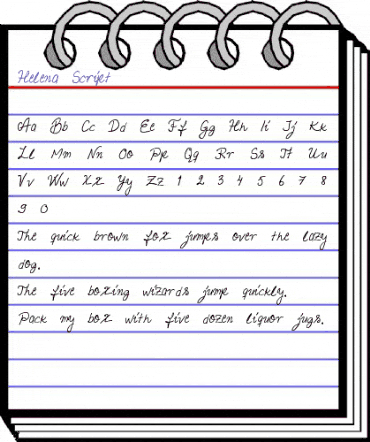 Helena Script
Aa Bb Cc Dd Ee Ff Gg Hh Ii Jj Kk
Ll Mm Nn Oo Pp Qq Rr Ss Tt Uu
Vv Ww Xx Yy Zz 1 2 3 4 5 6 7 8
9 0
The quick brown fox jumps over the lazy
dog.
The five boxing wizards jump quickly.
Pack my box with five dozen liquor jugs.